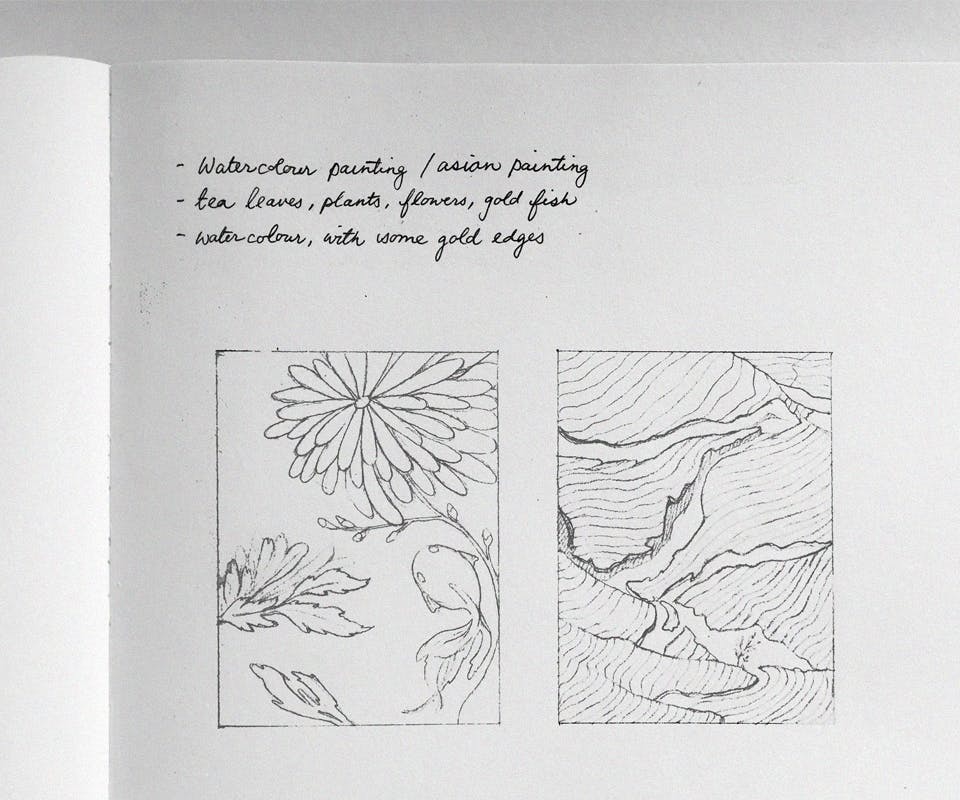 - Watercolour painting / asian painting
- tea leaves, plants, flowers, gold fish
- watercolour, with some gold edges